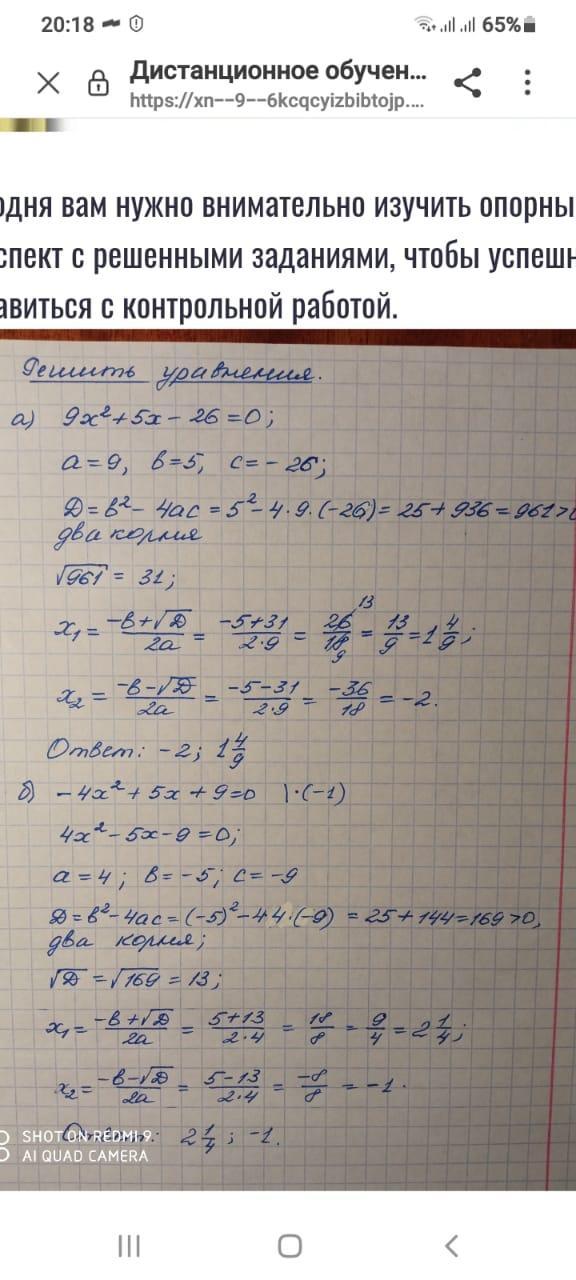 20:18
65%
Дистанционное обучен...
https://xn--9--6kcqcyizbibtojp....
одня вам нужно внимательно изучить опорны
спект с решенными заданиями, чтобы успешн
авиться с контрольной работой.
Решить уравнения.
а) 9x²+5x-26=0;
a=9, b=5, c=-26;
Д=b²-4ac=5²-4·9·(-26)=25+936=961>0
два корня
√961 = 31;
x₁= (-b+√Д)/2a = (-5+31)/(2·9) = 26/18 = 13/9 = 1 4/9;
x₂ = (-b-√Д)/2a = (-5-31)/(2·9) = -36/18 = -2.
Ответ: -2; 1 4/9
б) -4x²+5x+9=0 |·(-1)
4x²-5x-9=0;
a=4; b=-5; c=-9
Д=b²-4ac=(-5)²-4·4·(-9) = 25+144=169>0,
два корня;
√Д =√169 = 13;
x₁= (-b+√Д)/2a = (5+13)/(2·4) = 18/8 = 9/4 = 2 1/4;
x₂= (-b-√Д)/2a = (5-13)/(2·4) = -8/8 = -1.
Ответ: 2 1/4; -1.
SHOT ON REDMI 9
AI QUAD CAMERA